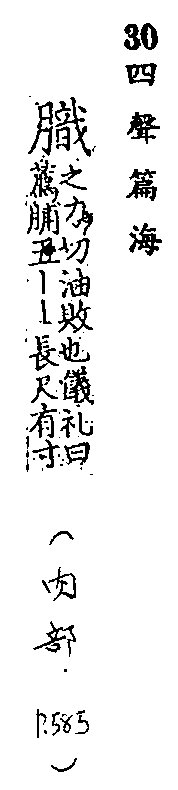 30 四聲篇海
膱
之力切油敗也儀礼曰
薦脯五丨丨長尺有寸
(肉部. P.585)